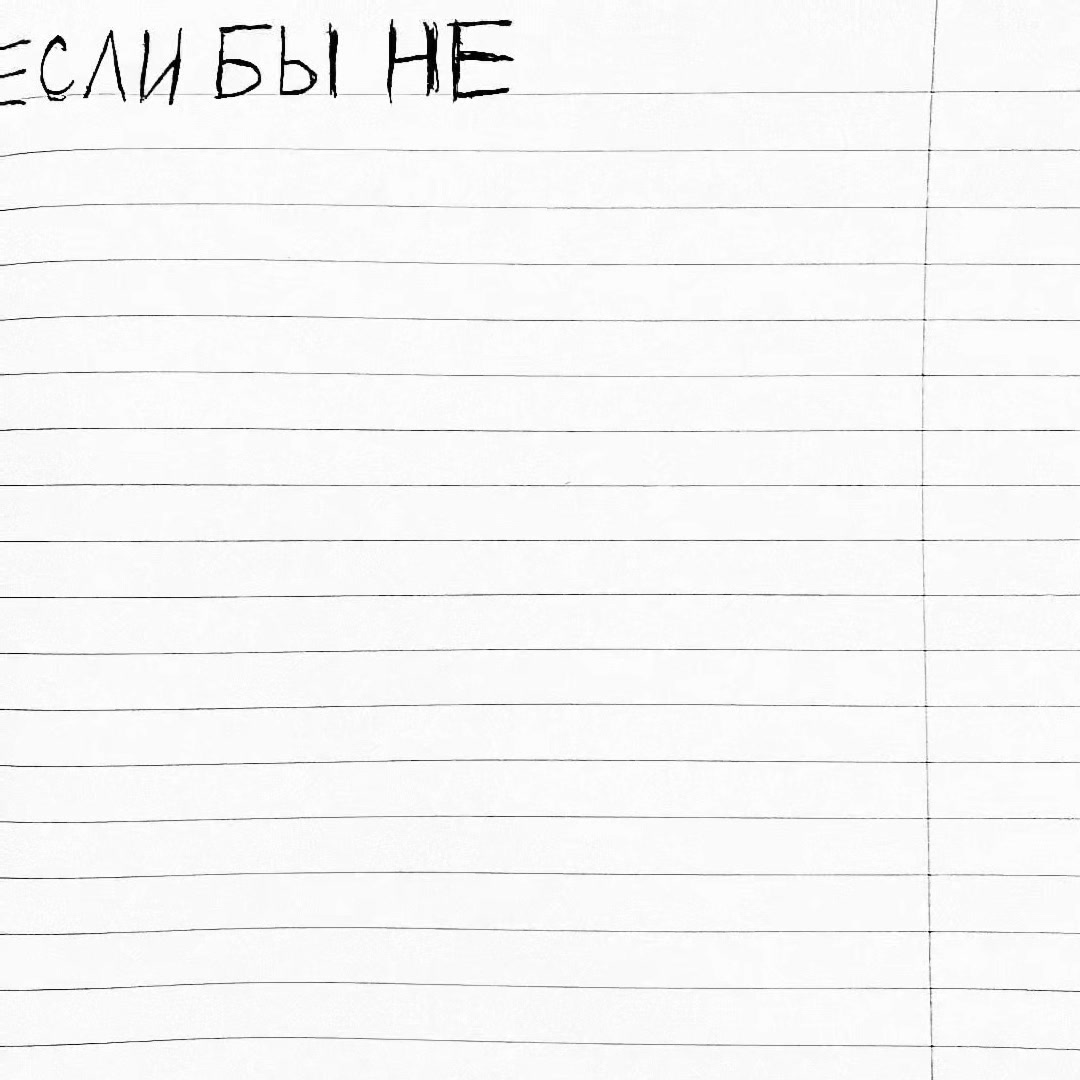 ЕСЛИ БЫ НЕ